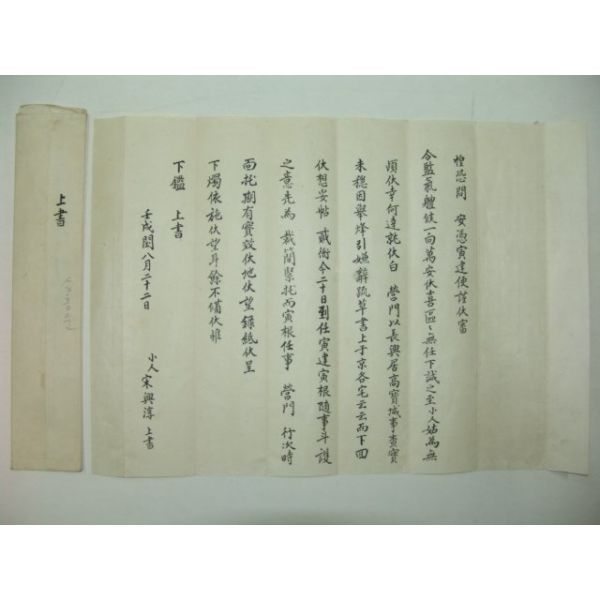 惶恐問 安憑寅建便謹伏審
令監氣軆候一向萬安伏喜區〻無任下誠之至小人姑爲無
頉伏幸何達就伏白 營門以長興居高寶城事查實
未穩因擧烽引嫌辭疏草書上于京各宅云云而下回
伏想妥帖 戴衡今二十日到任寅建寅根隨事斗護
之意先爲 裁簡緊托而寅根任事 營門 行次時
面托期有實效伏地伏望錄紙伏呈
下燭依施伏望耳餘不備伏惟
下鑑 上書
壬戌閏八月二十二日
小人 宋興淳 上書
上書